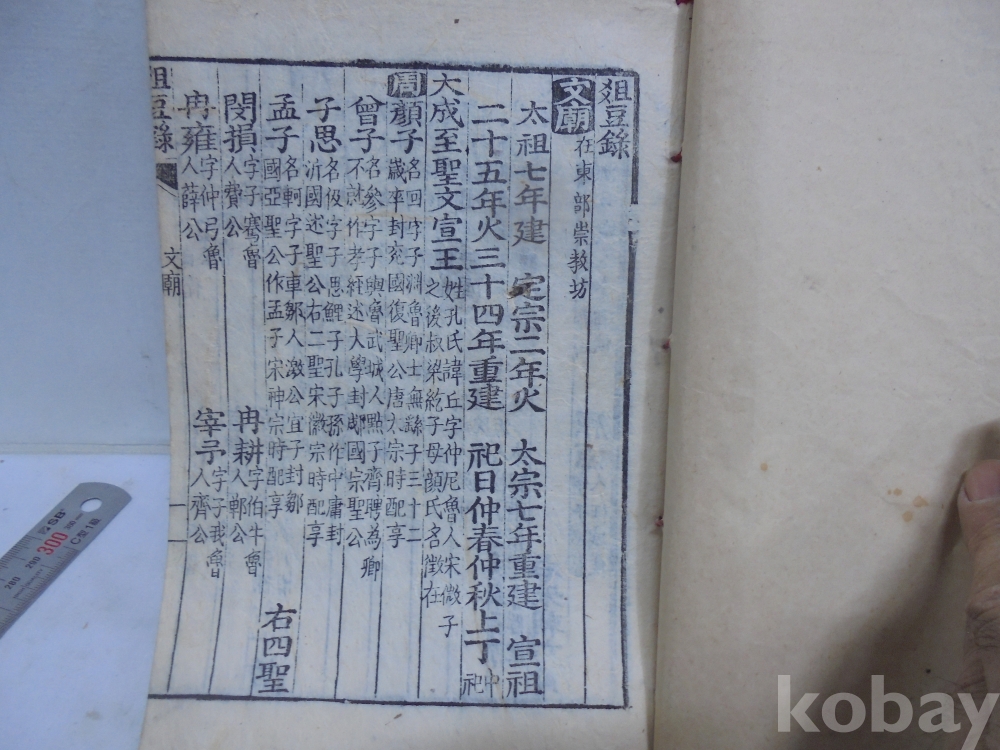 俎豆錄
文廟 在東部崇教坊
太祖七年建 定宗二年火 太宗七年重建 宣祖
二十五年火三十四年重建 祀日仲春仲秋上丁 中祀
大成至聖文宣王 姓孔氏諱丘字仲尼魯人宋微子之後叔梁紇子母顔氏名徵在
周 顏子 名回字子淵魯卿士無繇子三十二歲卒封兗國復聖公唐太宗時配享
曾子 名參字子輿魯武城人點子齊聘為卿不就作孝經述大學封郕國宗聖公
子思 名伋字子思鯉子孔子孫作中庸封沂國述聖公右二聖宋徽宗時配享
孟子 名軻字子車鄒人激公宜子封鄒國亞聖公作孟子宋神宗時配享 右四聖
閔損 字子騫魯人費公 冉耕 字伯牛魯人鄆公
冉雍 字仲弓魯人薛公 宰予 字子我魯人齊公
俎豆錄 文廟 一
300
290
280
kobay